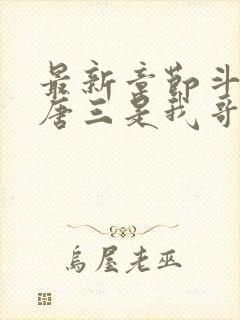 最新章节斗
唐三是我哥
乌屋老巫